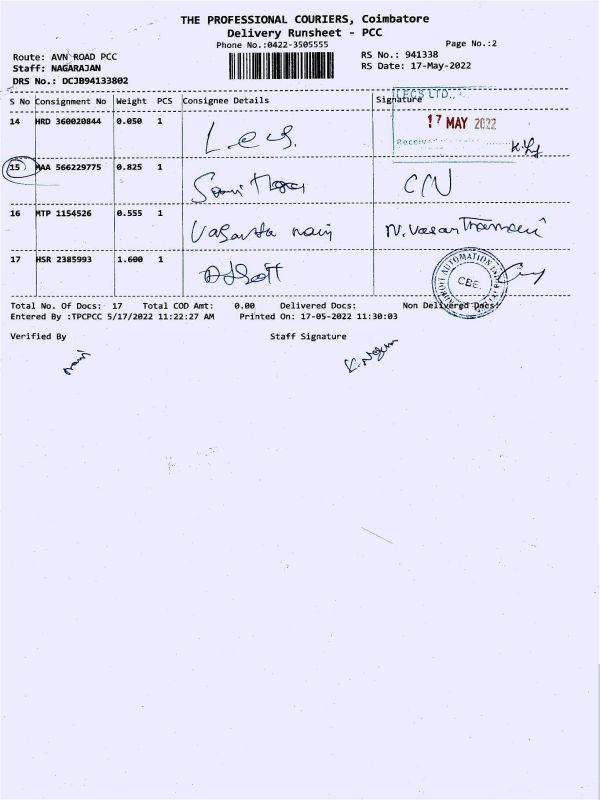 THE PROFESSIONAL COURIERS, Coimbatore
Delivery Runsheet - PCC
Phone No.:0422-3505555
Page No.:2
Route: AVN ROAD PCC
Staff: NAGARAJAN
DRS No.: DCJB94133802
RS No.: 941338
RS Date: 17-May-2022
S No Consignment No Weight PCS Consignee Details Signature
LECS LTD.,
14 HRD 360020844 0.050 1 Lecs.
17 MAY 2022
Received
15 MAA 566229775 0.825 1
16 MTP 1154526 0.555 1 Vasantha mani N. Vasanthamani
17 HSR 2385993 1.600 1
AUTOMATION
CBE.
Total No. Of Docs: 17 Total COD Amt: 0.00 Delivered Docs: Non Delivered Docs:
Entered By :TPCPCC 5/17/2022 11:22:27 AM Printed On: 17-05-2022 11:30:03
Verified By Staff Signature
mani